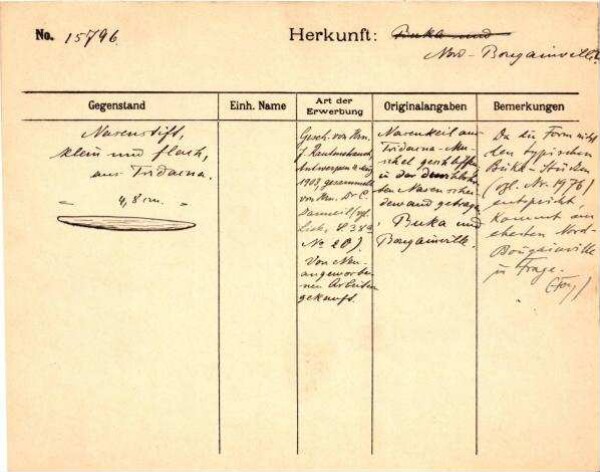 No. 15796
Herkunft: Buka und
Nord-Bougainville
Gegenstand
Einh. Name
Art der Erwerbung
Originalangaben
Bemerkungen
Nasenstift,
klein und flach,
aus Tridacna.
4,8 cm.
Gesch. von Hrn.
J. Rautenstrauch,
Antwerpen
1908, gesammelt
von Hrn. Dr. C.
No 20).
Von Neu-
angeworbe-
nen Arbeitern
gekauft.
Nasenkeil aus
Tridacna-Mu-
schel geschliffen
in der
ten Nasenschei-
dewand getragen.
Buka und
Bougainville.
Da die Form nicht
den typischen
Buka-Stücken
(vgl. Nr. 1976)
entspricht,
kommt am
ehesten Nord-
Bougainville
in Frage.
(Foy)